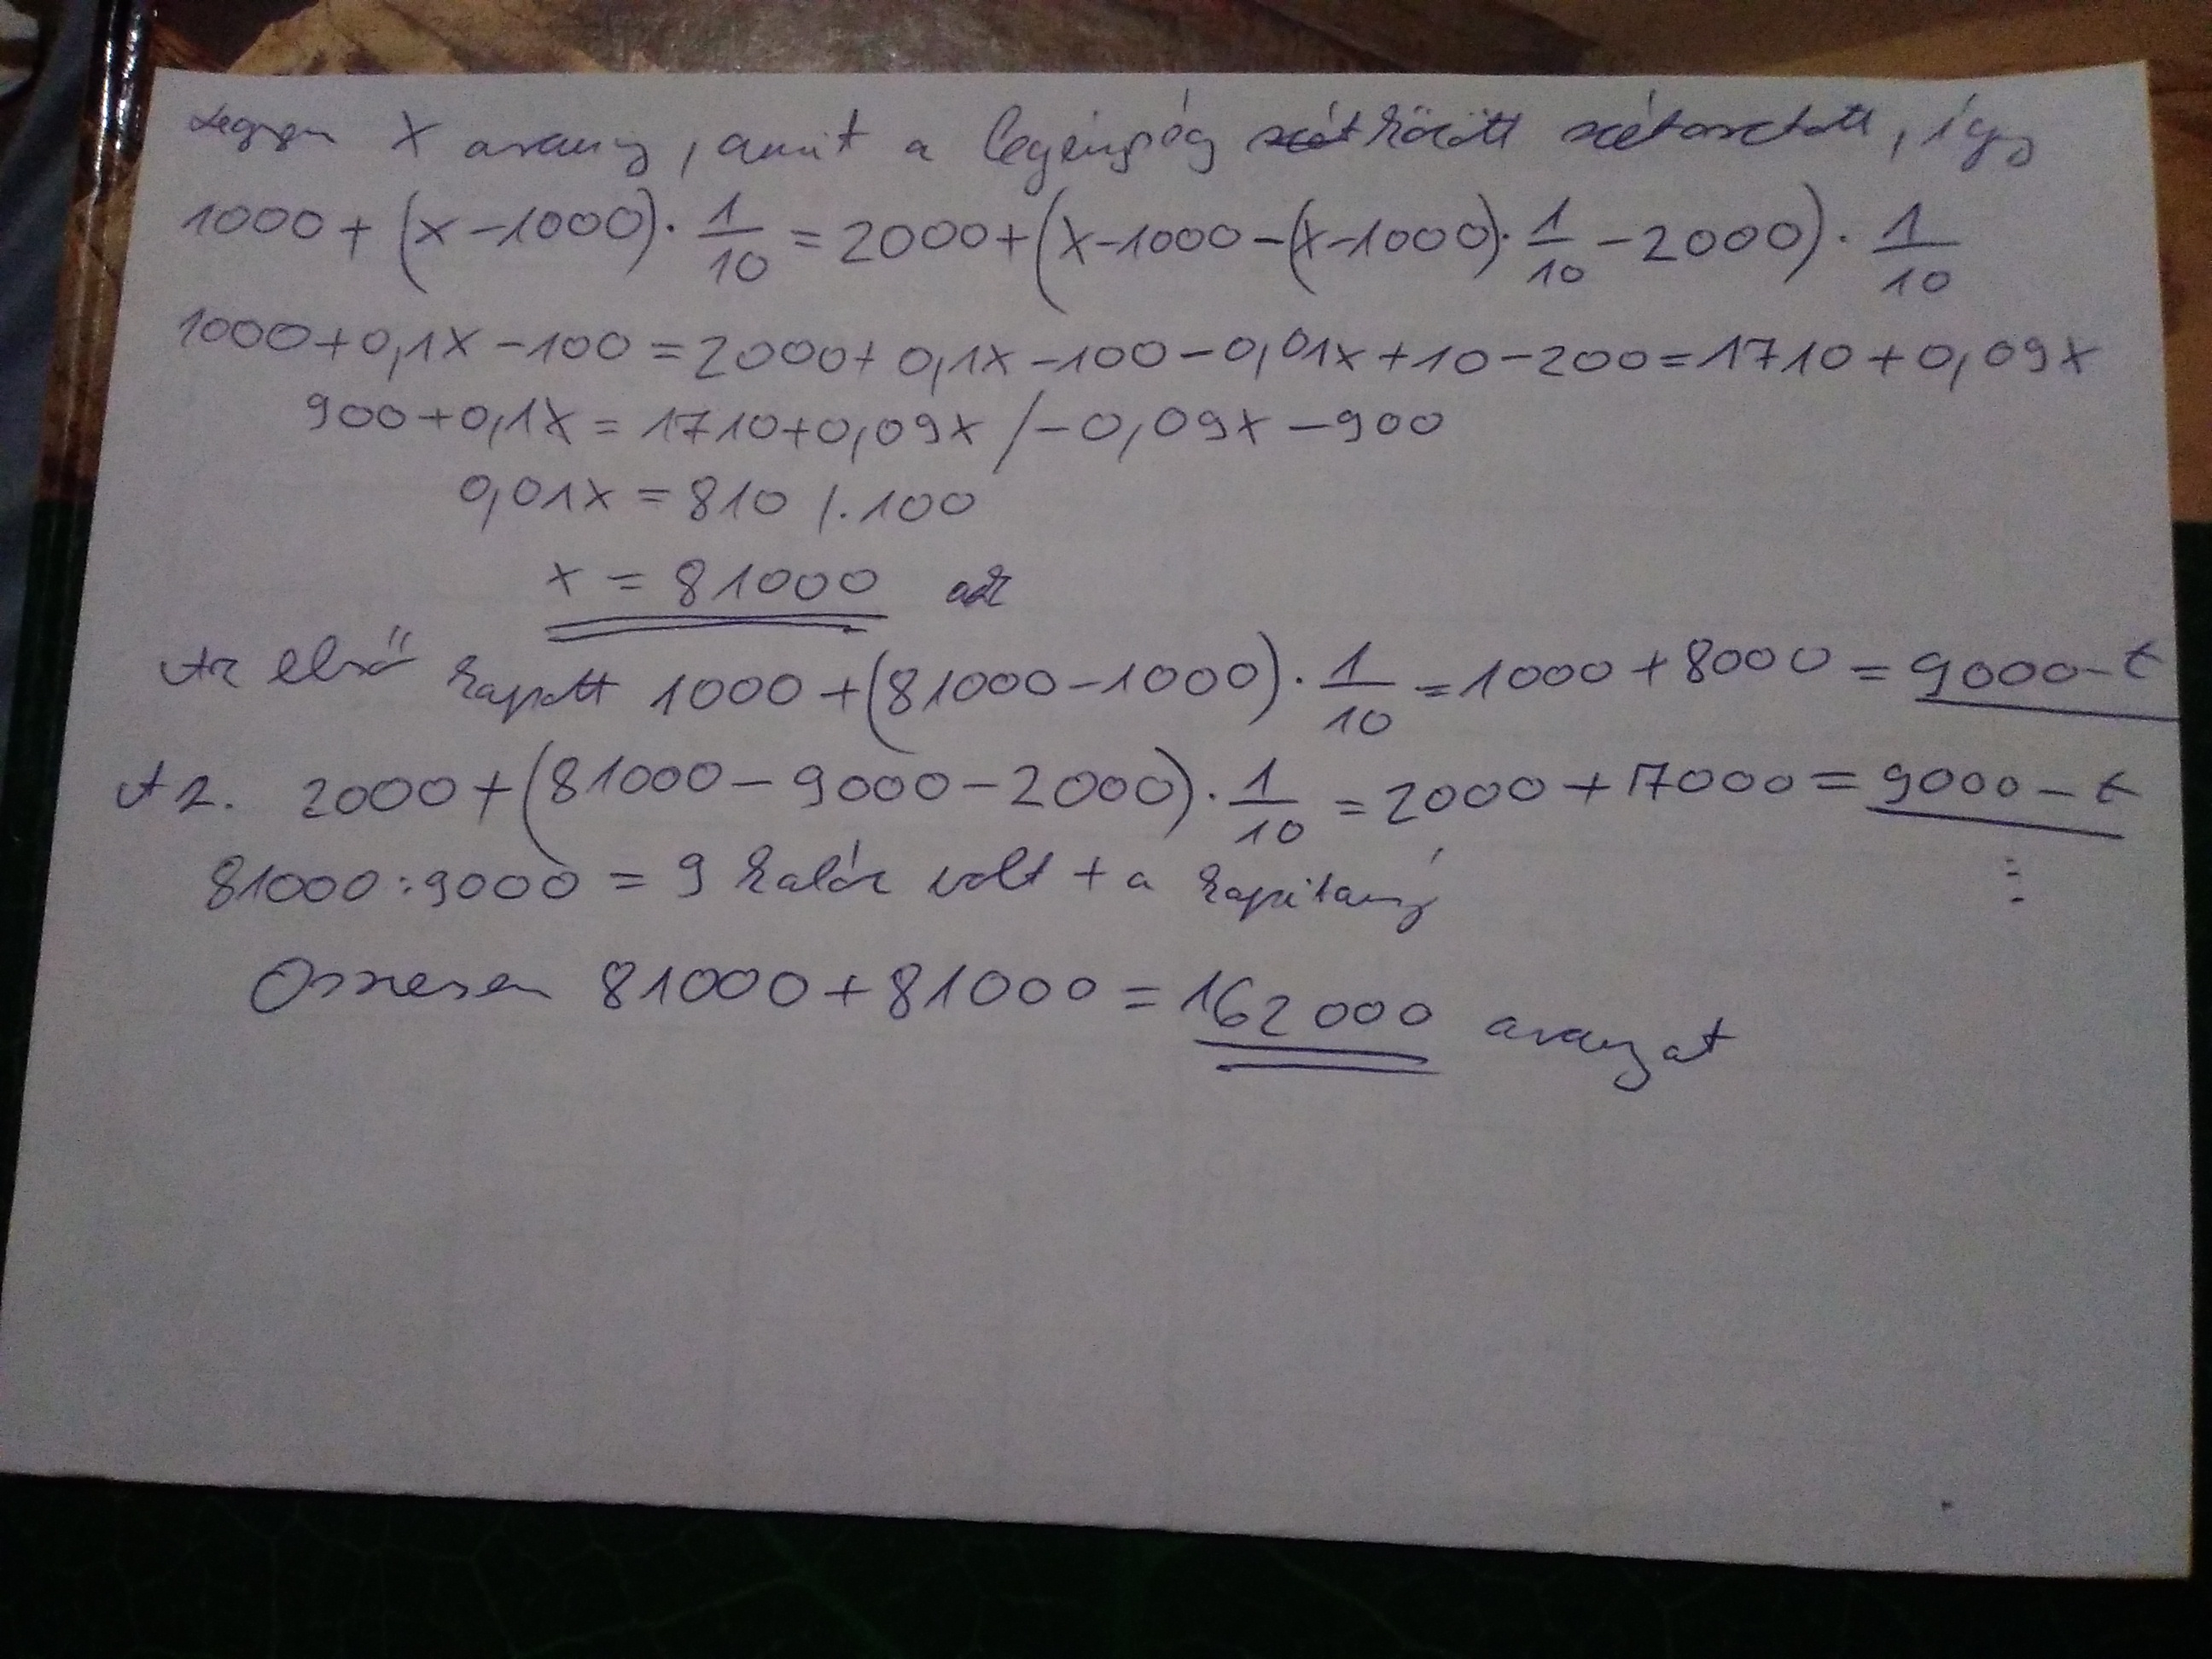 Legyen x arany, amit a legénység között szétosztott, így
1000 + (x - 1000) · 1/10 = 2000 + (x - 1000 - (x - 1000) · 1/10 - 2000) · 1/10
1000 + 0,1x - 100 = 2000 + 0,1x - 100 - 0,01x + 10 - 200 = 1710 + 0,09x
900 + 0,1x = 1710 + 0,09x / - 0,09x - 900
0,01x = 810 /·100
x = 81000
Az első kapott 1000 + (81000 - 1000) · 1/10 = 1000 + 8000 = 9000-t
A 2. 2000 + (81000 - 9000 - 2000) · 1/10 = 2000 + 7000 = 9000-t
81000 : 9000 = 9 kalóz volt + a kapitány
Összesen 81000 + 81000 = 162 000 aranyat